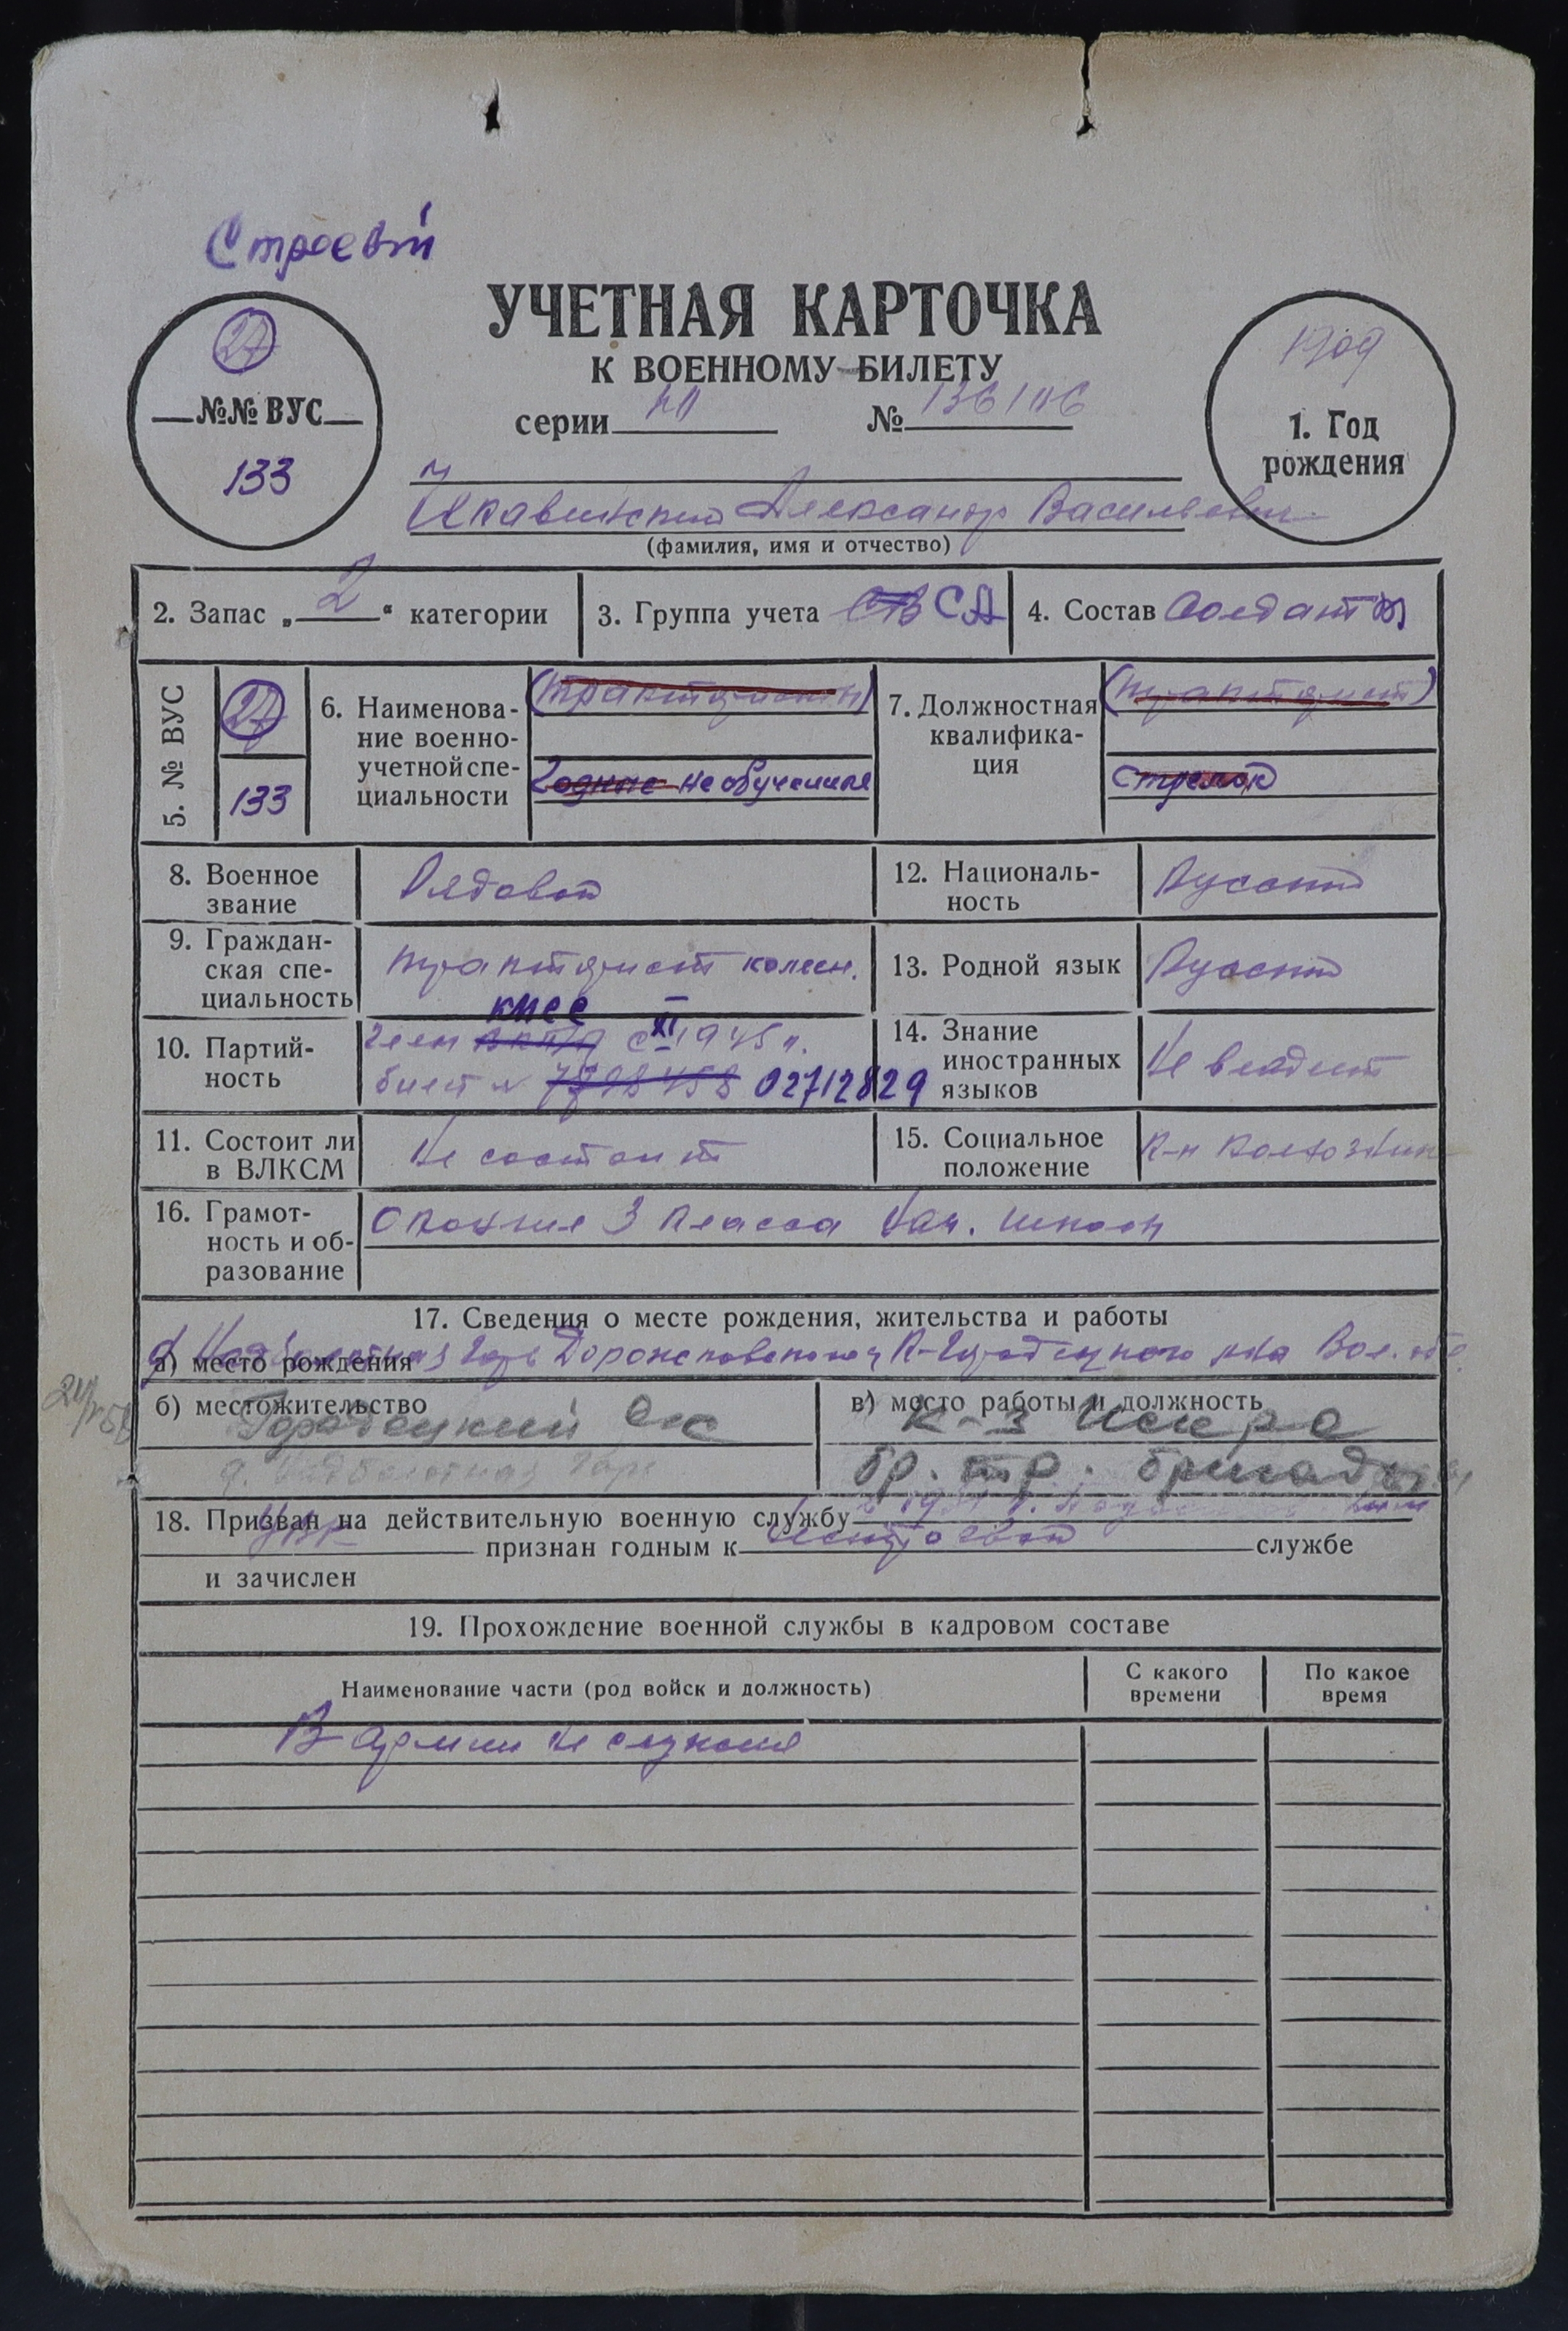 Строевой
27
№№ ВУС
133
УЧЕТНАЯ КАРТОЧКА
К ВОЕННОМУ БИЛЕТУ
серии НП № 136106
1909
1. Год
рождения
Александр Васильевич
(фамилия, имя и отчество)
2. Запас „ 2 “ категории
3. Группа учета СА
4. Состав Солдаты
5. № ВУС
27
133
6. Наименова-
ние военно-
учетной спе-
циальности
(трактористы)
Годные необученные
7. Должностная
квалифика-
ция
(тракторист)
Стрелок
8. Военное
звание
Рядовой
12. Националь-
ность
Русский
9. Граждан-
ская спе-
циальность
тракторист колесн.
13. Родной язык
Русский
10. Партий-
ность
КПСС
Член ВКП/б с XI 1945 г.
билет № 7798458 02712829
14. Знание
иностранных
языков
Не владеет
11. Состоит ли
в ВЛКСМ
Не состоит
15. Социальное
положение
К-н Колхозник
16. Грамот-
ность и об-
разование
Окончил 3 класса Нач. школы
17. Сведения о месте рождения, жительства и работы
а) место рождения
д. Надболотная Гарь Дорожковского К-Городецкого р-на Вол. обл.
б) местожительство
Городецкий с/с
д. Надболотная Гарь
в) место работы и должность
к-з Искра
бр. тр. бригады
18. Призван на действительную военную службу в 1931 г.
признан годным к нестроевой службе
и зачислен
19. Прохождение военной службы в кадровом составе
Наименование части (род войск и должность)
С какого
времени
По какое
время
В армии не служил